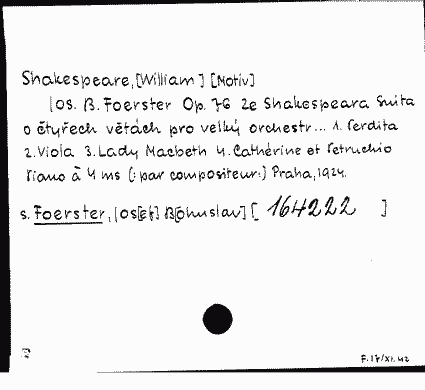 Shakespeare, [William] [Motiv]
Jos. B. Foerster Op. 76 Ze Shakespeara Suita
o čtyřech větách pro velký orchestr... 1. Perdita
2. Viola 3. Lady Macbeth 4. Cathérine et Petruchio
Piano à 4 ms (: par compositeur:) Praha, 1924.
s. Foerster, Jos[ef] B[ohuslav] [ 164222 ]
F. 17/XI. 42